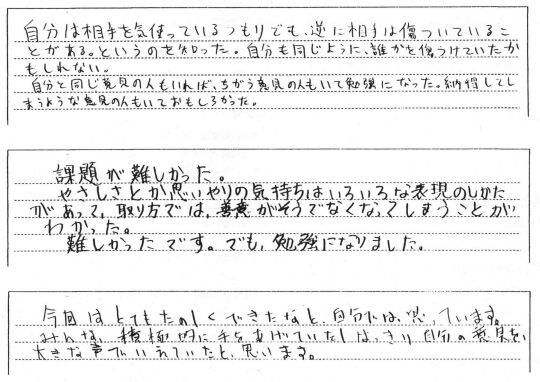 自分は相手を気使っているつもりでも、逆に相手は傷ついているこ
とがある。というのを知った。自分も同じように、誰かを傷つけていたか
もしれない。
自分と同じ意見の人もいれば、ちがう意見の人もいて勉強になった。納得してし
まうような意見の人もいておもしろかった。
課題が難しかった。
やさしさとか思いやりの気持ちはいろいろな表現のしかた
があって、取り方では、善意がそうでなくなってしまうことが
わかった。
難しかったです。でも、勉強になりました。
今回はとてもたのしくできたなと、自分では、思っています。
みんな、積極的に手をあげていたしはっきり自分の意見を
大きな声でいえていたと、思います。